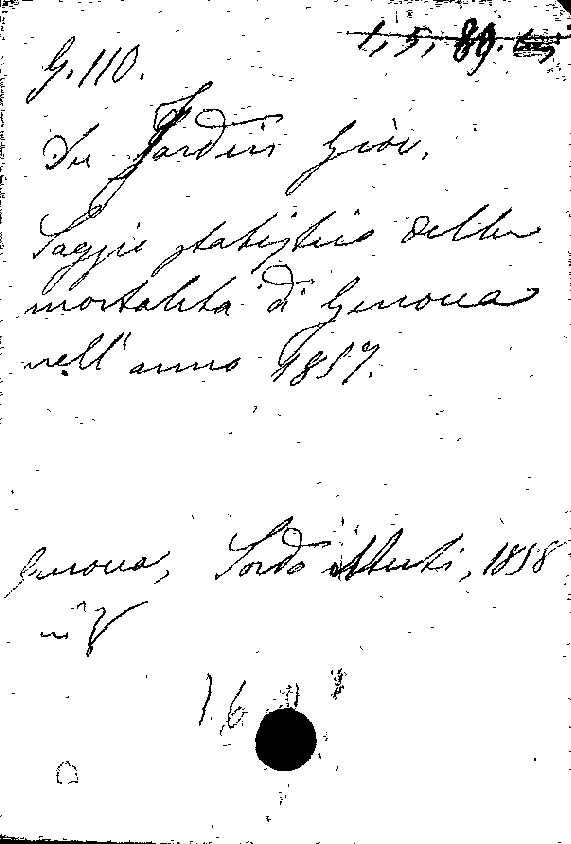 G. 110.
1, 5, 89.
Du Jardin Giov.
Saggio statistico della
mortalità di Genova
nell'anno 1857.
Genova, Sordo Muti, 1858
in 8